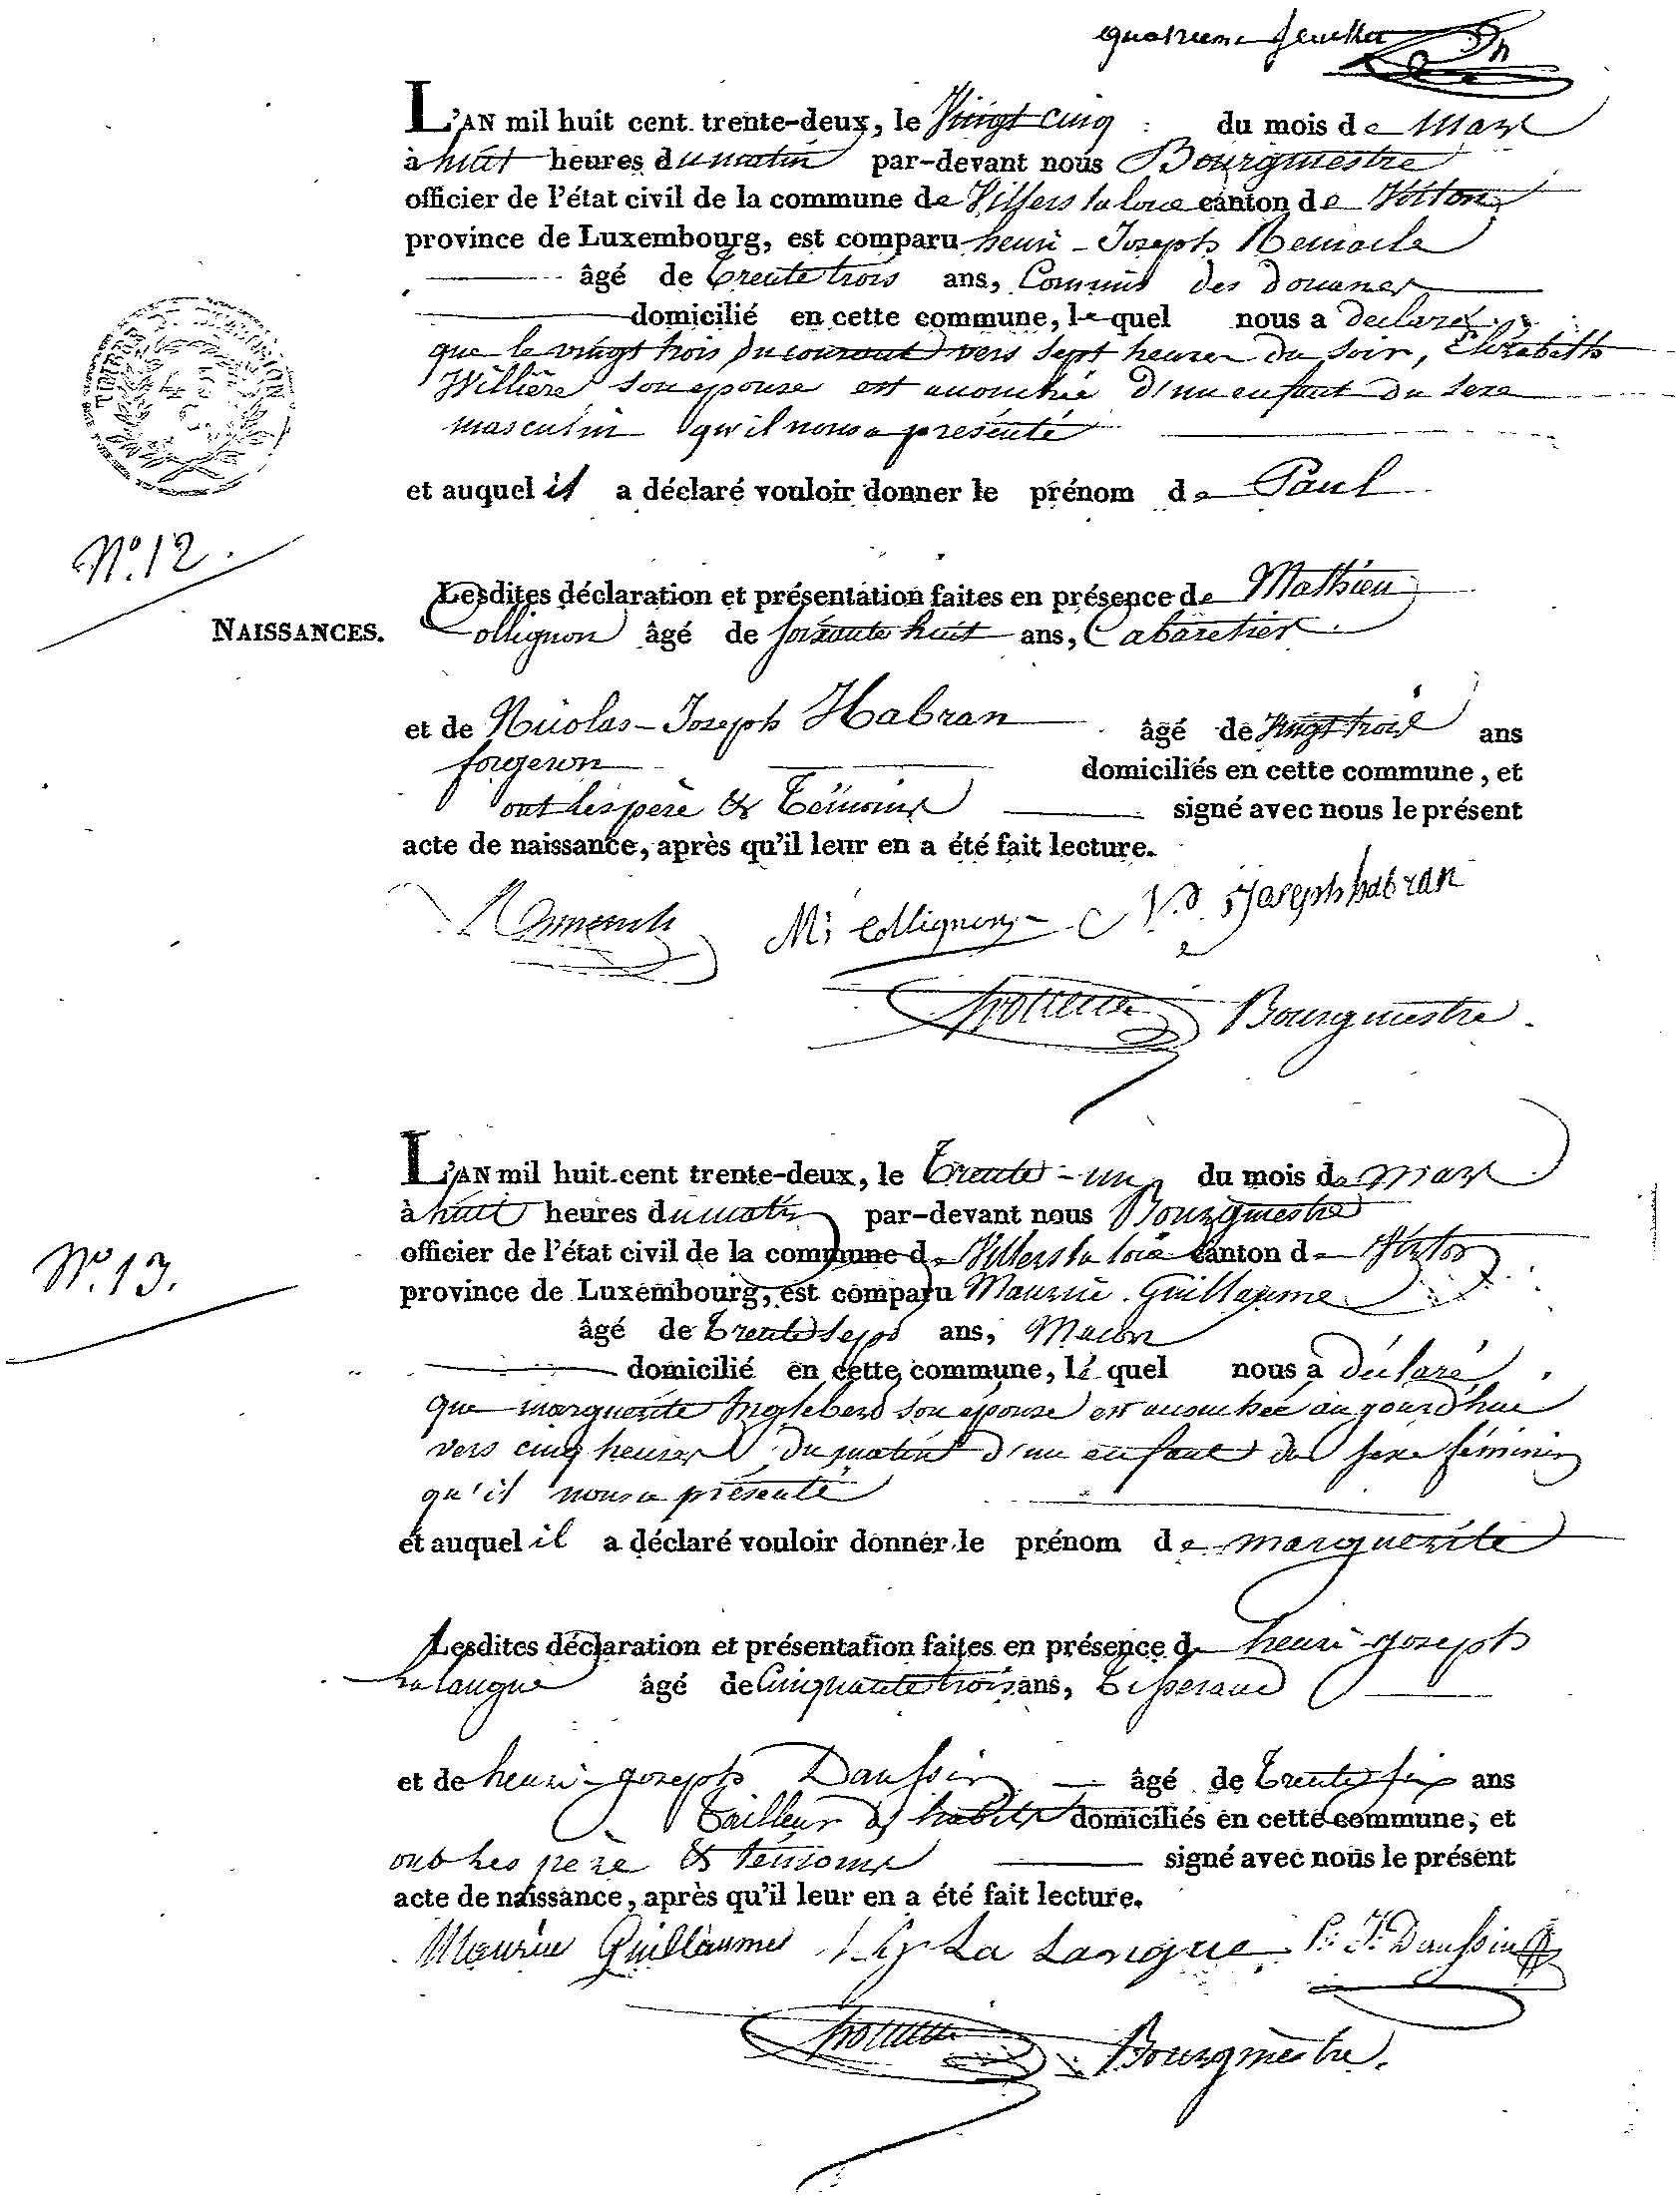 quatrieme feuillet
L'AN mil huit cent trente-deux, le Vingt cinq du mois de Mars
à huit heures du matin par-devant nous Bourgmestre
officier de l'état civil de la commune de Villers la loue canton de Virton
province de Luxembourg, est comparu henri-Joseph Remacle
âgé de trente trois ans, Commis des douanes
domicilié en cette commune, lequel nous a declaré
que le vingt trois du courant vers sept heures du soir, Elizabeth
Willière son epouse est accouchée d'un enfant du sexe
masculin qu'il nous a présenté
et auquel il a déclaré vouloir donner le prénom de Paul
N° 12.
Lesdites déclaration et présentation faites en présence de Mathieu
NAISSANCES.
Collignon âgé de soixante huit ans, Cabaretier
et de Nicolas-Joseph Habran âgé de vingt trois ans
forgeron domiciliés en cette commune, et
ont les père & témoins signé avec nous le présent
acte de naissance, après qu'il leur en a été fait lecture.
M; Collignon N.s Joseph habran
Bourgmestre.
L'AN mil huit cent trente-deux, le trente-un du mois de mars
à huit heures du matin par-devant nous Bourgmestre
officier de l'état civil de la commune de Villers la loue canton de Virton
N° 13.
province de Luxembourg, est comparu Maurice Guillaume
âgé de trente sept ans, Macon
domicilié en cette commune, le quel nous a déclaré
que marguerite Inglebert son épouse est accouchée aujourd'hui
vers cinq heures du matin d'un enfant du sexe féminin
qu'il nous a présenté
et auquel il a déclaré vouloir donner le prénom de marguerite
Lesdites déclaration et présentation faites en présence de henri-joseph
La langue âgé de Cinquante trois ans, tisserand
et de henri-joseph Daussin âgé de trente six ans
tailleur d'habits domiciliés en cette commune, et
ont les père & témoins signé avec nous le présent
acte de naissance, après qu'il leur en a été fait lecture.
Maurice Guillaume La Langue h: J: Daussin
Bourgmestre.